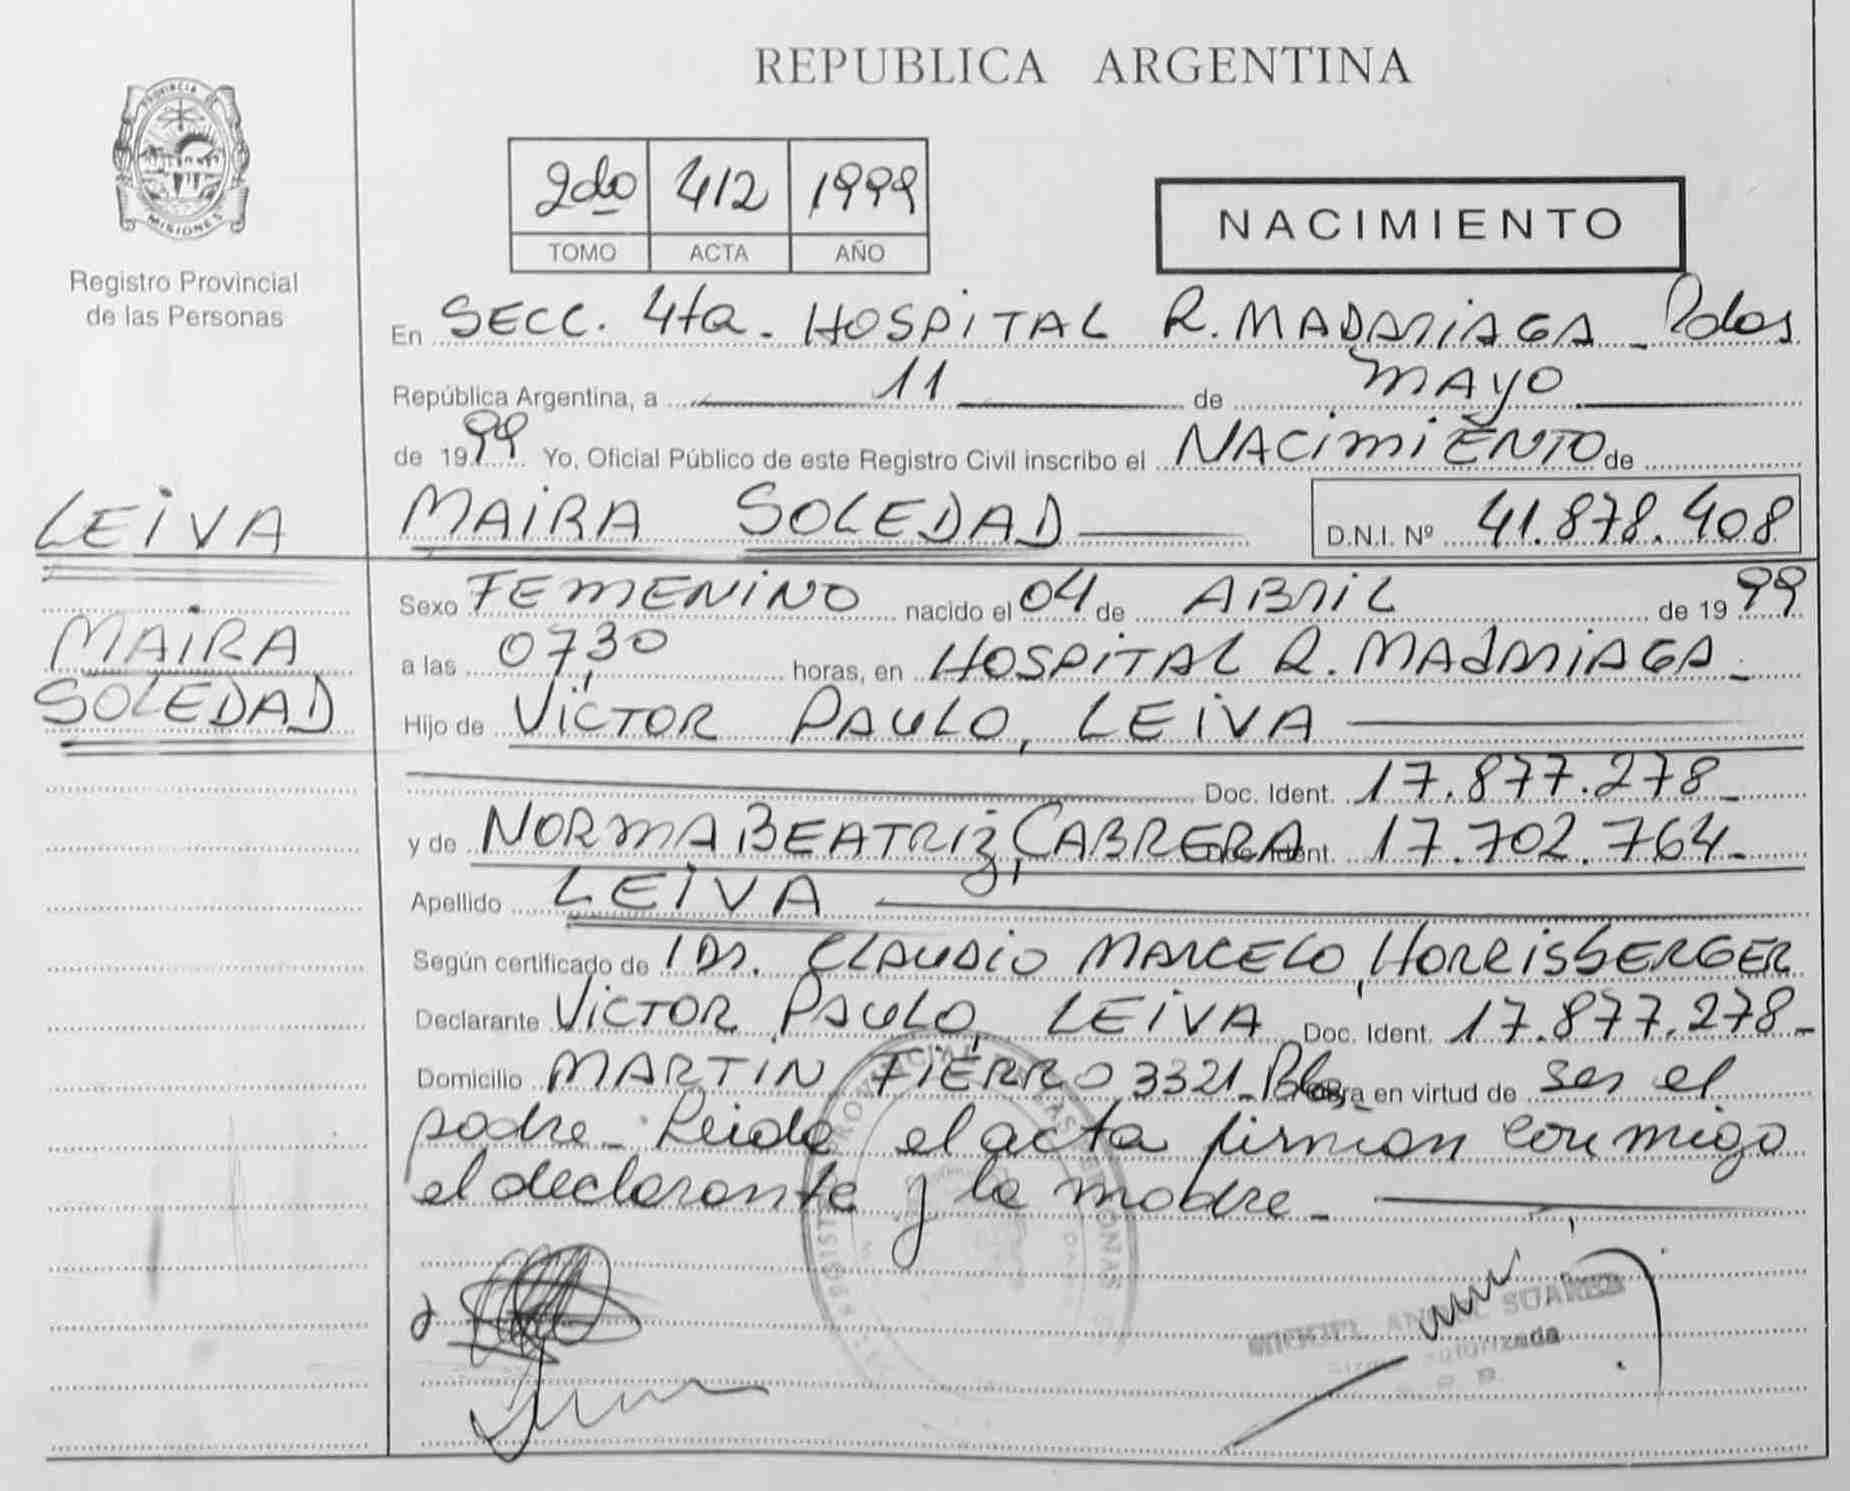 REPUBLICA ARGENTINA
PROVINCIA DE
MISIONES
Registro Provincial
de las Personas
2do 412 1999
TOMO ACTA AÑO
NACIMIENTO
En SECC. 4ta. HOSPITAL R. MADARIAGA - Pdas
República Argentina, a 11 de MAYO
de 1999 Yo, Oficial Público de este Registro Civil inscribo el NACIMIENTO de
LEIVA MAIRA SOLEDAD D.N.I. Nº 41.878.408
MAIRA
SOLEDAD
Sexo FEMENINO nacido el 04 de ABRIL de 1999
a las 07,30 horas, en HOSPITAL R. MADARIAGA -
Hijo de VICTOR PAULO, LEIVA
Doc. Ident. 17.877.278 -
y de NORMA BEATRIZ, CABRERA Doc. Ident. 17.702.764 -
Apellido LEIVA
Según certificado de Dr. CLAUDIO MARCELO, HORRISBERGER
Declarante VICTOR PAULO, LEIVA Doc. Ident. 17.877.278 -
Domicilio MARTIN FIERRO 3321 - obra en virtud de ser el
padre - Leida el acta firman conmigo
el declarante y la madre -
REGISTRO PROVINCIAL DE LAS PERSONAS
MIGUEL ANGEL SUAREZ
Firma Autorizada